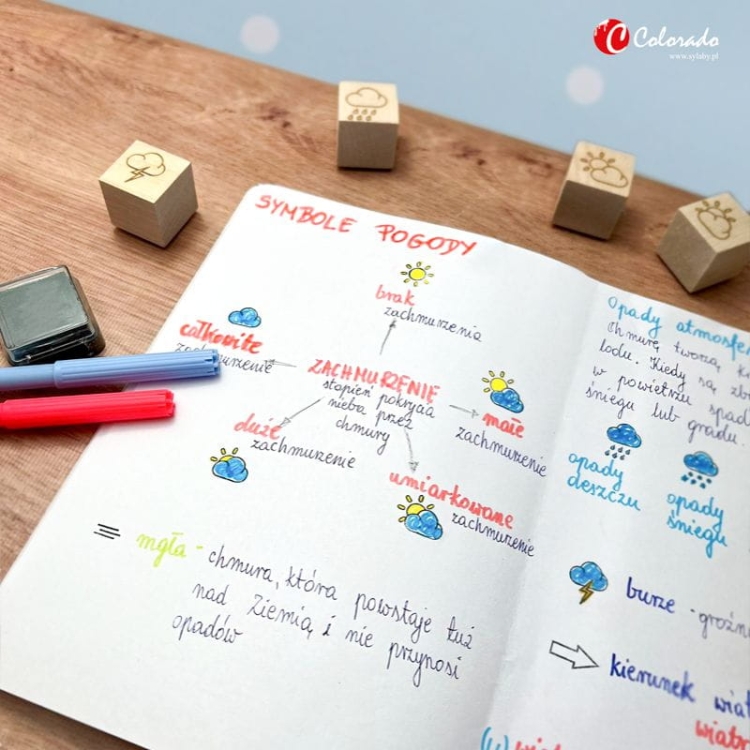 Colorado
www.sylaby.pl
SYMBOLE POGODY
brak
zachmurzenia
całkowite
zachmurzenie
ZACHMURZENIE
stopień pokrycia
nieba przez
chmury
małe
zachmurzenie
duże
zachmurzenie
umiarkowane
zachmurzenie
mgła - chmura, która powstaje tuż
nad Ziemią i nie przynosi
opadów
Opady atmosfe
Chmurę tworzą
lodu. Kiedy są
w powietrzu spad
śniegu lub gradu.
opady
deszczu
opady
śniegu
burze - groźn
kierunek wiat